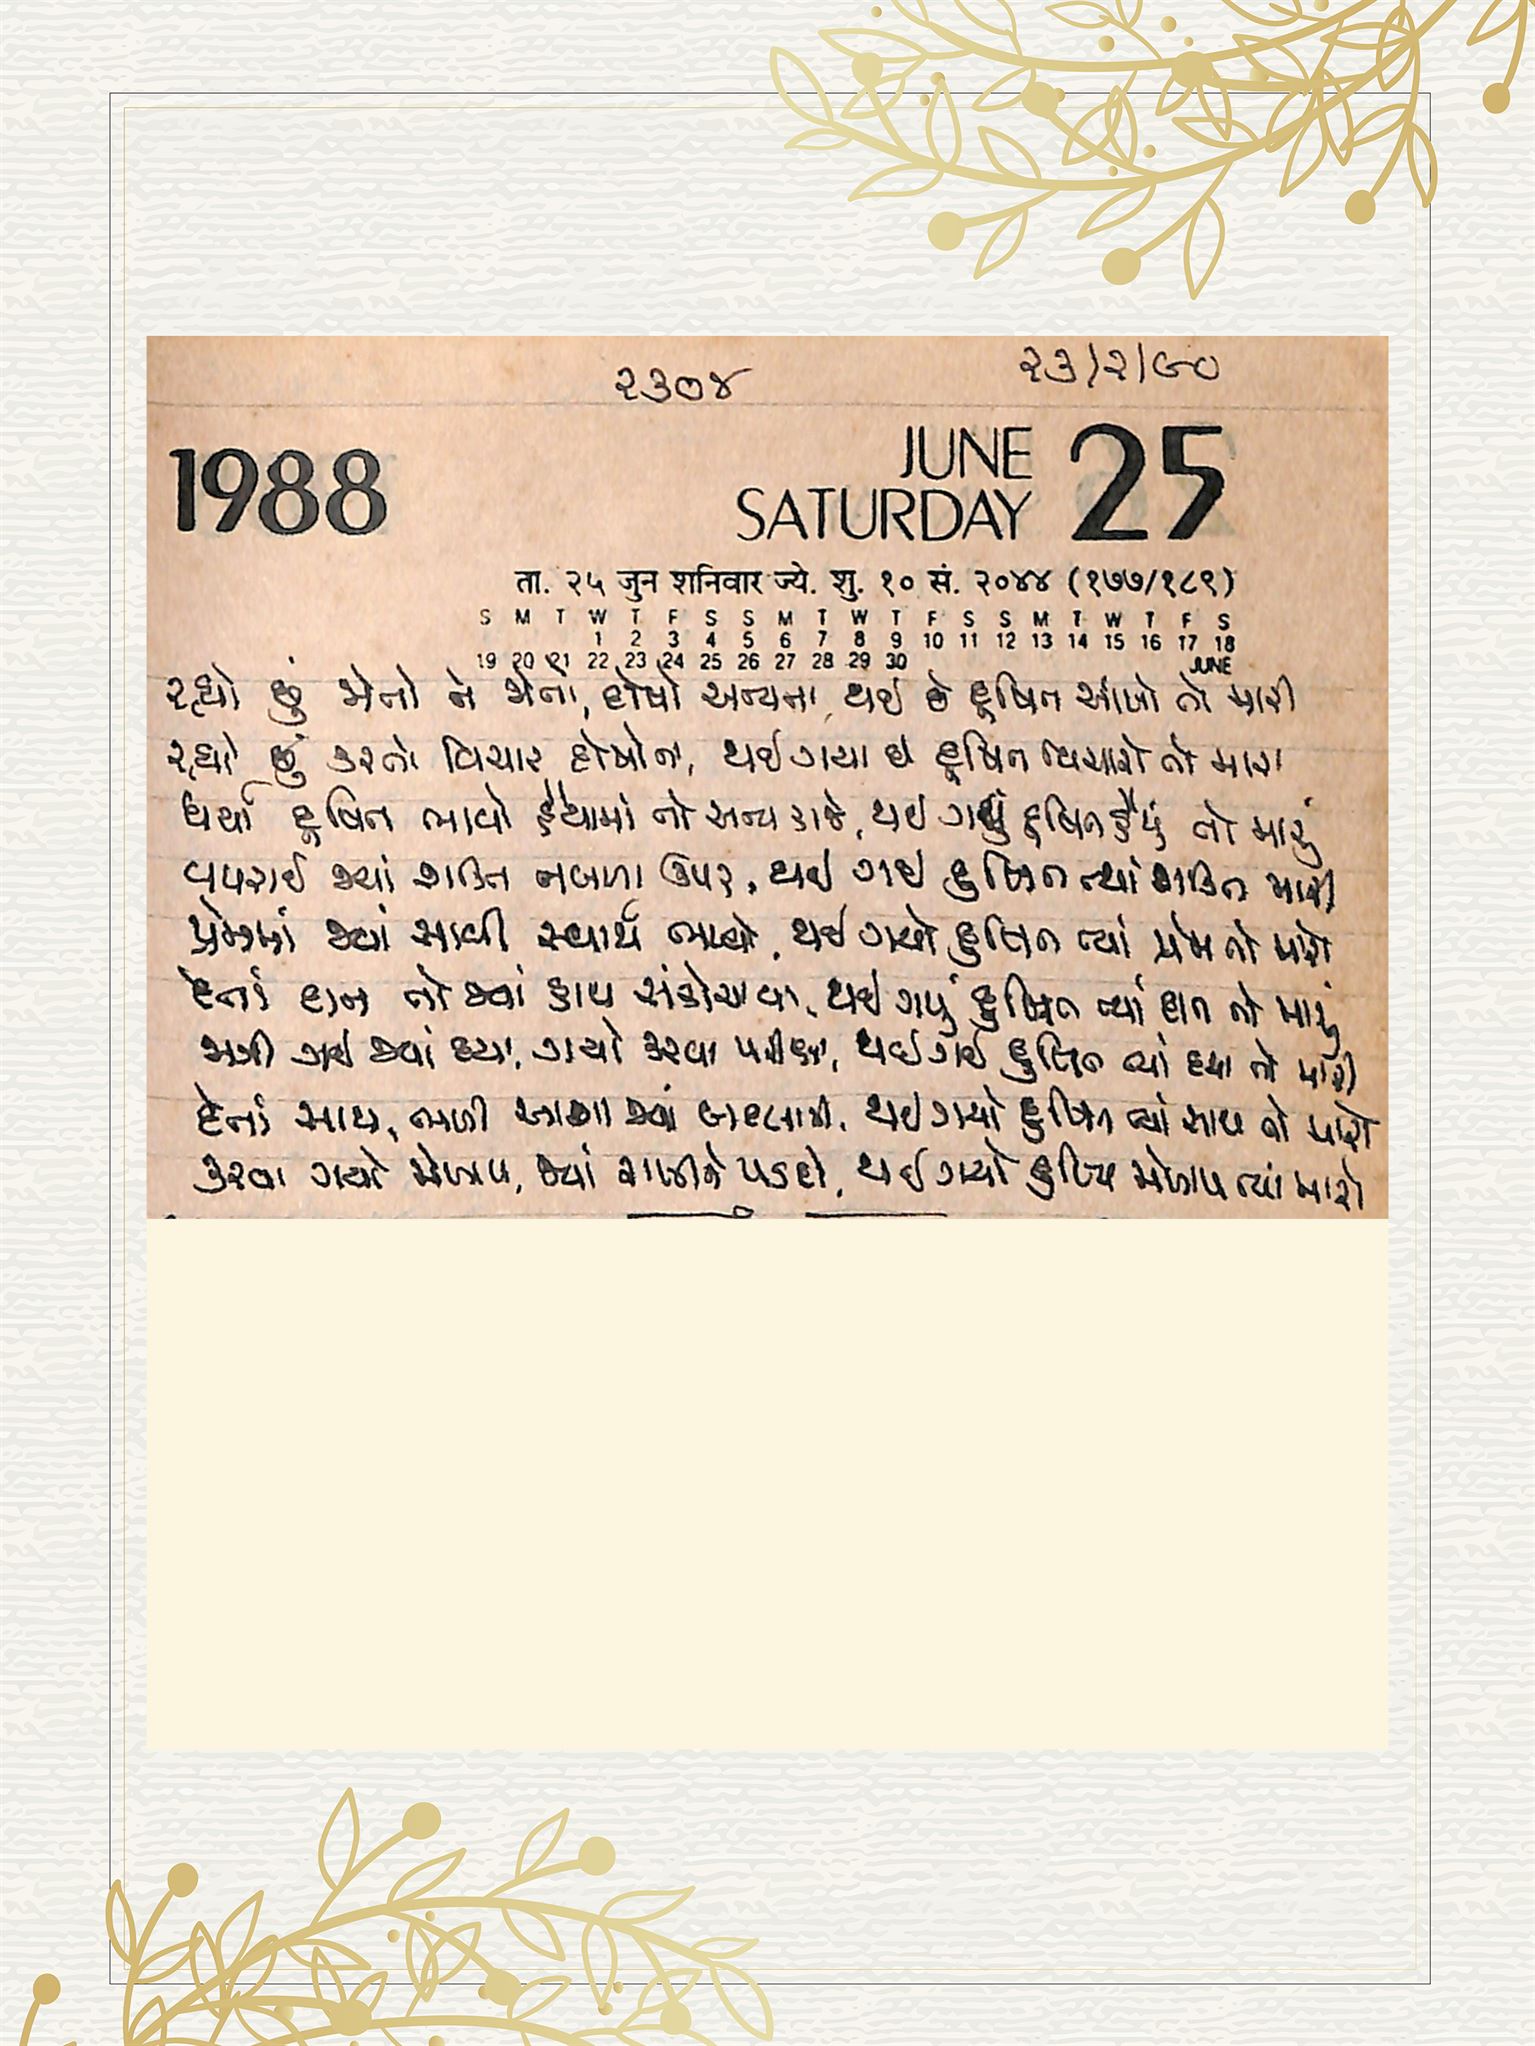 ૨૩૦૪
૨૩/૨/૯૦
1988
JUNE 25
SATURDAY
ता. २५ जुन शनिवार ज्ये. शु. १० सं. २०४४ (१७७/१८९)
S M T W T F S S M T W T F S S M T W T F S
1 2 3 4 5 6 7 8 9 10 11 12 13 14 15 16 17 18
19 20 21 22 23 24 25 26 27 28 29 30 JUNE
રહ્યો છું જોતો ને જોતો, દોષો અન્યના, થઈ છે દૂષિત આંખો તો મારી
રહ્યો છું કરતો વિચાર દોષોના, થઈ ગયા છે દૂષિત વિચારો તો મારા
ધર્યા દૂષિત ભાવો હૈયામાં તો અન્ય કાજે, થઈ ગયું દૂષિત હૈયું તો મારું
વપરાઈ જ્યાં શક્તિ નબળા ઉપર, થઈ ગઈ દુષિત ત્યાં શક્તિ મારી
પ્રેમમાં જ્યાં આવી સ્વાર્થ ભળ્યો, થઈ ગયો દુષિત ત્યાં પ્રેમ તો મારો
દેતાં દાન તો જ્યાં હાથ સંકોચાયા, થઈ ગયું દુષિત ત્યાં દાન તો મારું
મળી ગઈ જ્યાં દયા, ગયો કરવા પરીક્ષા, થઈ ગઈ દુષિત ત્યાં દયા તો મારી
દેતાં સાથ, ભળી આશા જ્યાં બદલાની, થઈ ગયો દુષિત ત્યાં સાથ તો મારો
કરવા ગયો મેળાપ, જ્યાં રાખીને પડદો, થઈ ગયો દુષિત મેળાપ ત્યાં મારો